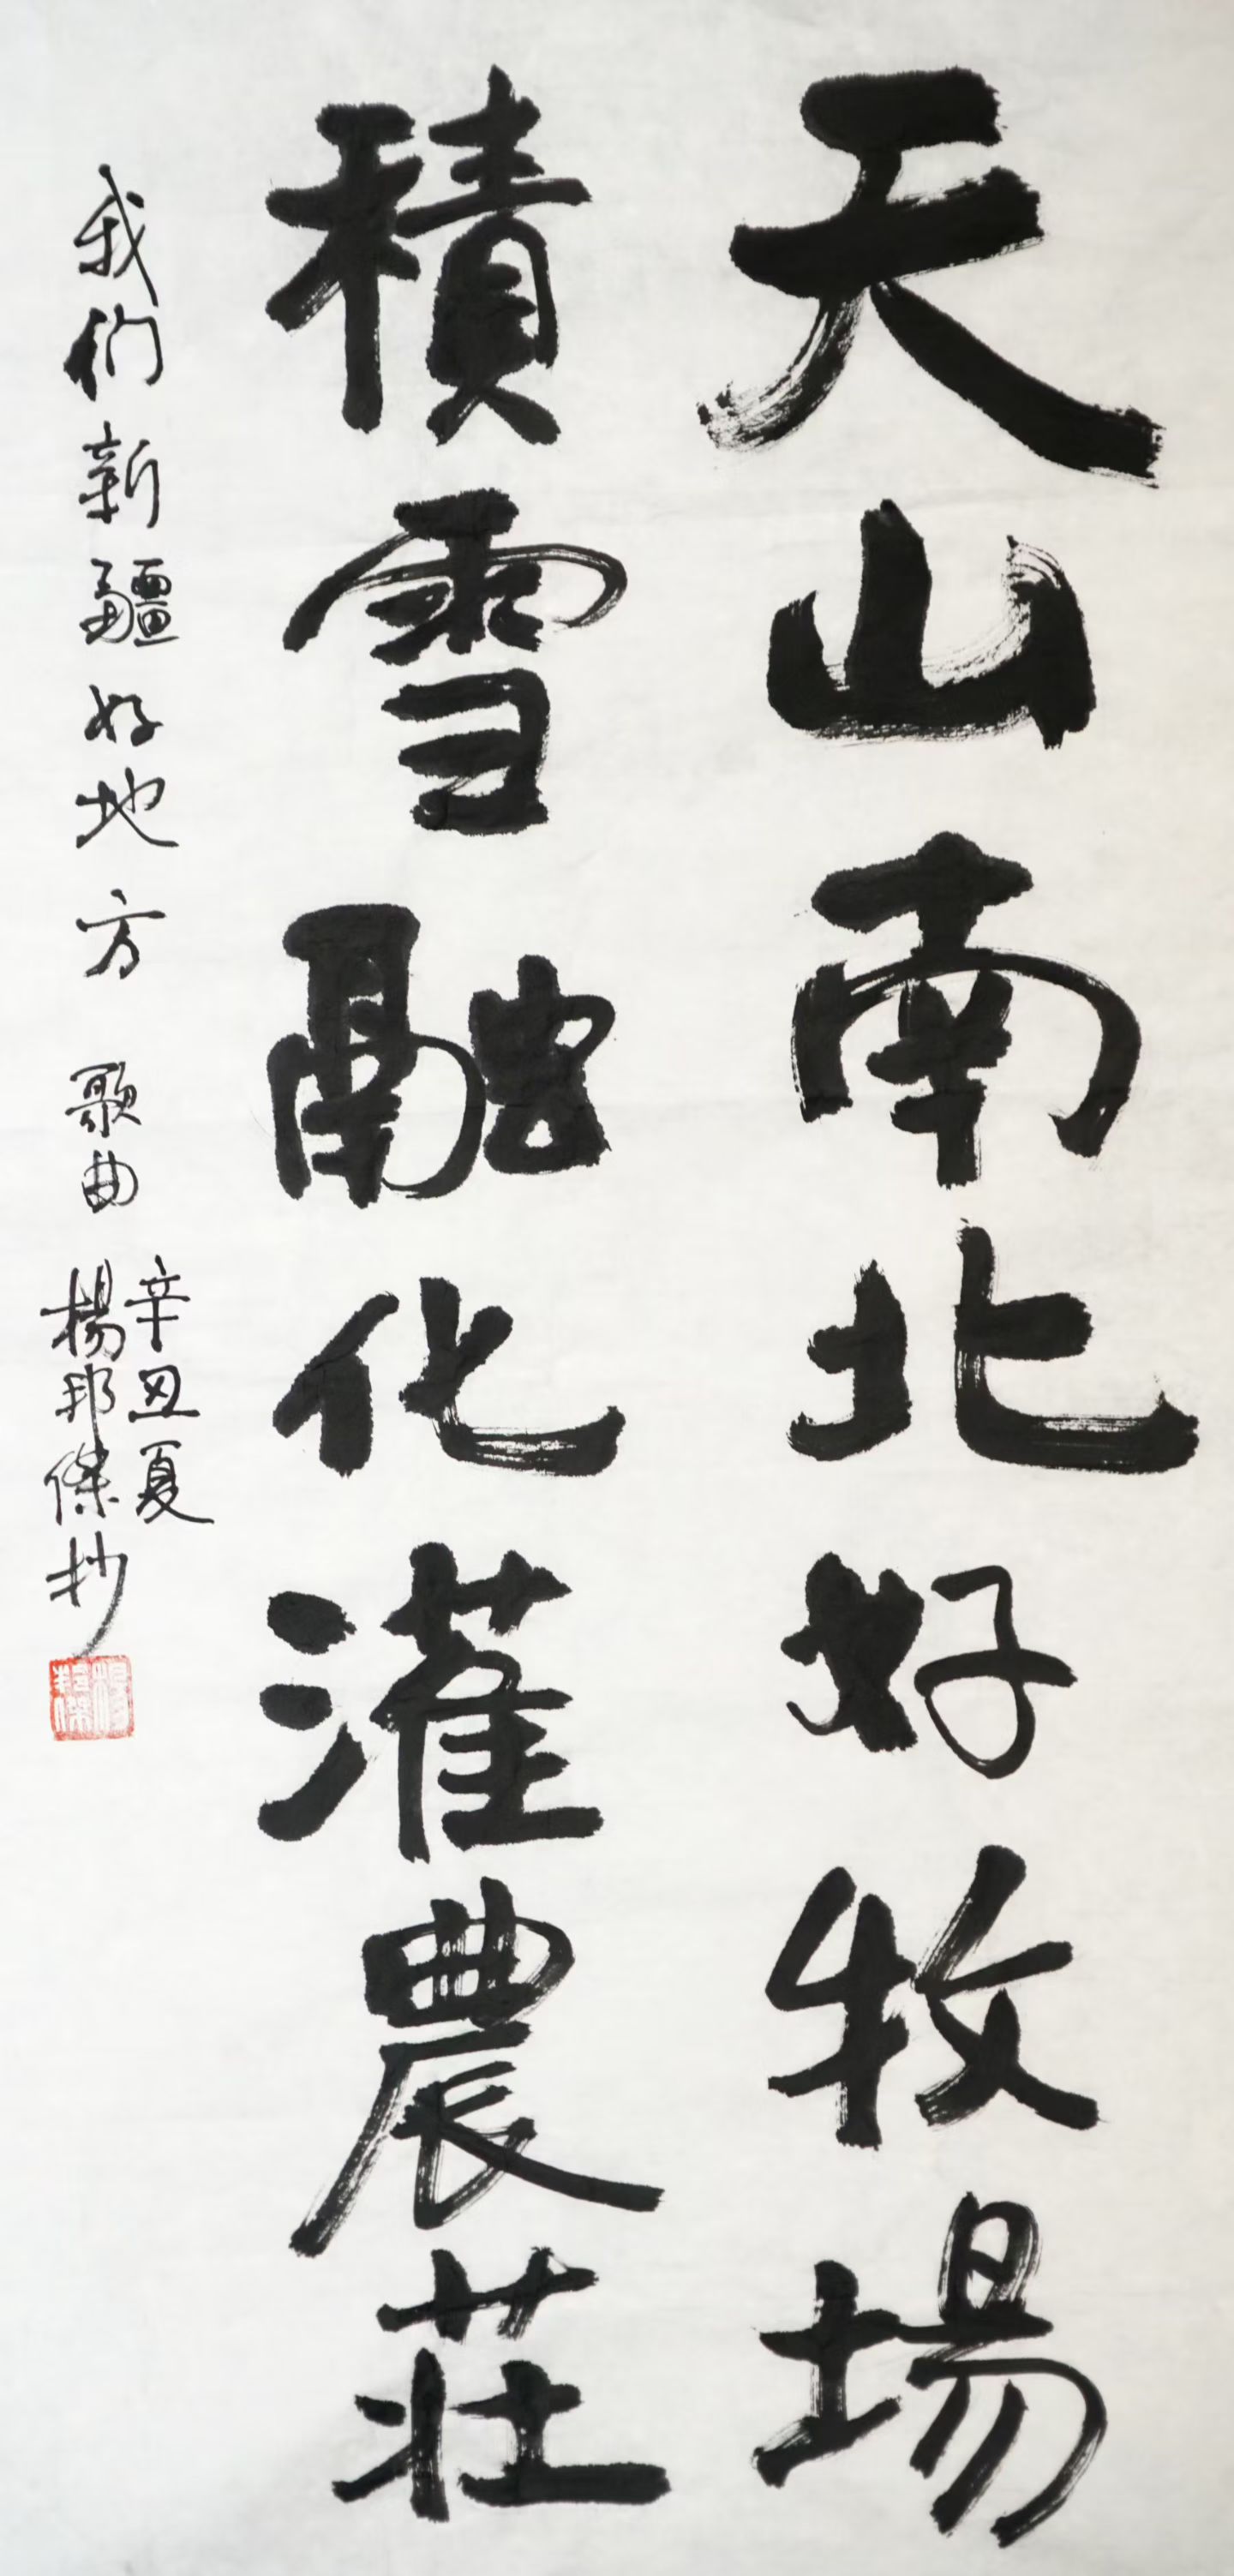 天山南北好牧場
積雪融化灌農莊
我们新疆好地方 歌曲
辛丑夏
楊邦傑抄